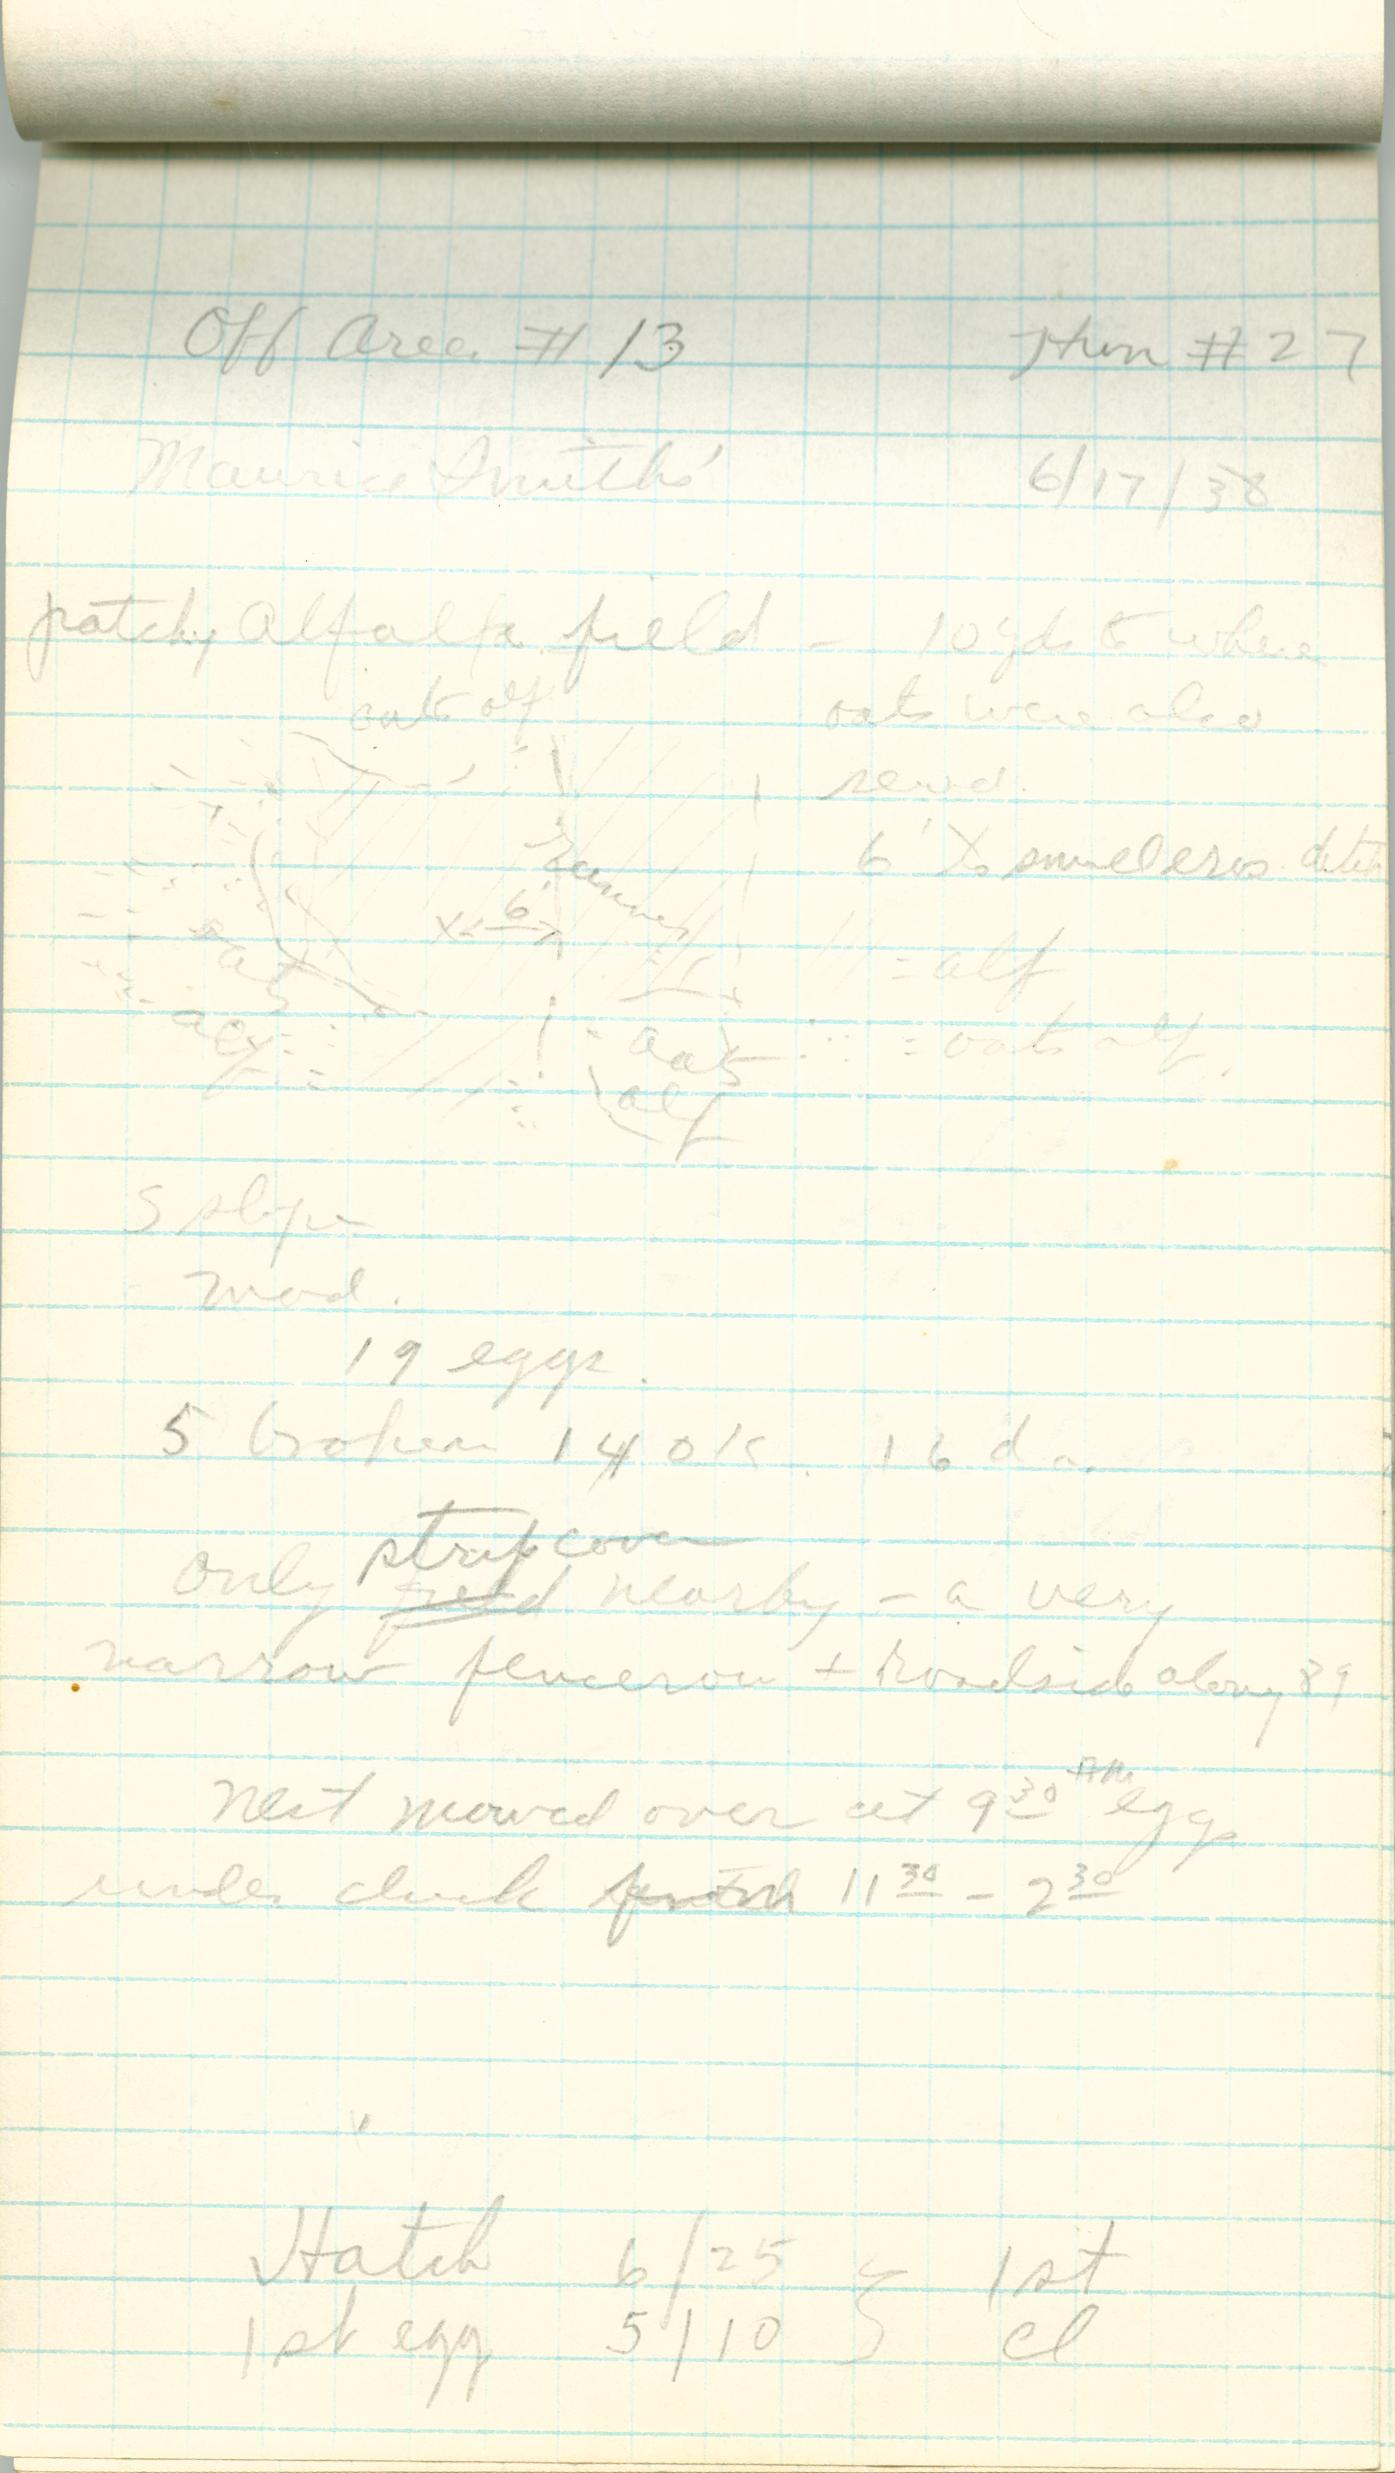 Off Area #13 Hun #27
Maurice Smith's 6/17/38
patchy Alfalfa field - 10 yds to where
oats alf oats were also
seeded.
6' to small eros ditch
6
oats
alf
oats
alf
= alf
= oats alf.
S slope
mod.
19 eggs.
5 broken 14 o.k. 16 da.
strip cover
Only field nearby - a very
narrow fencerow + roadside along 89
Nest mowed over at 9 30 AM eggs
under cluck 11 30 - 2 30
Hatch 6/25 } 1st
1st egg 5/10 } cl